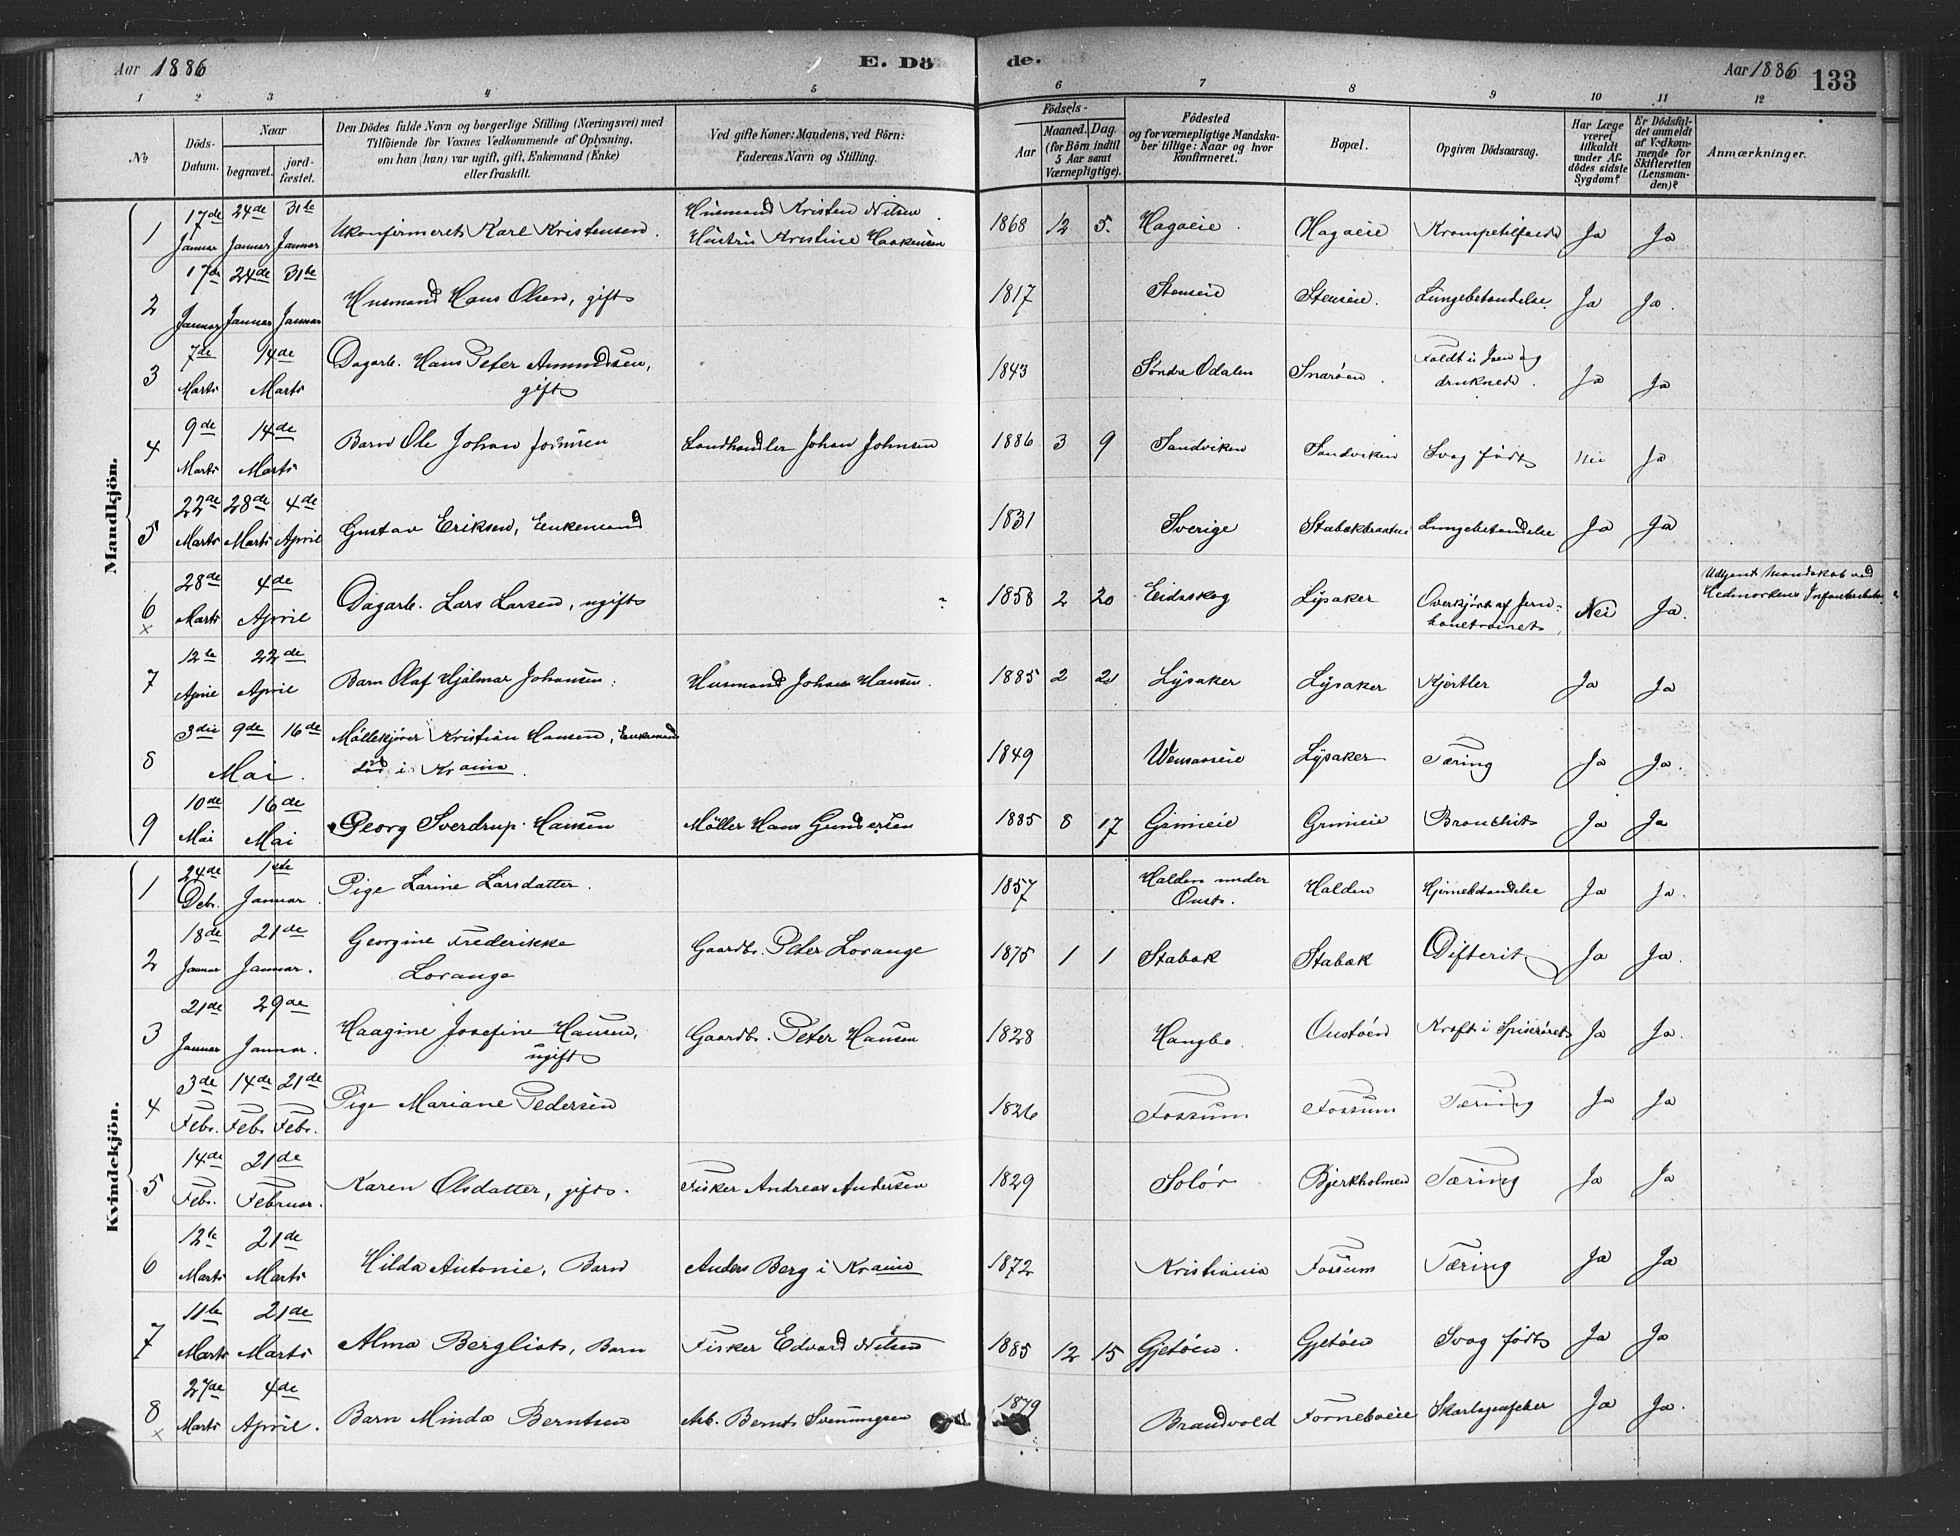 Aar 1886
E. Dö
de.
Aar 1886
133
1 2 3 4 5 6 7 8 9 10 11 12
No
Döds-
Datum.
Naar
begravet.
jord-
fæstet.
Den Dödes fulde Navn og borgerlige Stilling (Næringsvei) med
Tilföiende for Voxnes Vedkommende af Oplysning,
om han (hun) var ugift, gift, Enkemand (Enke)
eller fraskilt.
Ved gifte Koner: Mandens, ved Börn:
Faderens Navn og Stilling.
Födsels-
Aar
Maaned. Dag.
(for Börn indtil
5 Aar samt
Værnepligtige).
Födested
og for værnepligtige Mandska-
ber tillige: Naar og hvor
konfirmeret.
Bopæl.
Opgiven Dödsaarsag.
Har Læge
været
tilkaldt
under Af-
dödes sidste
Sygdom?
Er Dödsfal-
det anmeldt
af Vedkom-
mende for
Skifteretten
(Lensman-
den)?
Anmærkninger.
Mandkjön.
1 17de Januar 24de Januar 31te Januar Ukonfirmeret Karl Kristensen. Husmand Kristen Nilsen
Hustru Kristine Haakensen 1868 12 5. Hagaeie. Hagaeie Krampetilfælde Ja Ja
2 17de Januar 24de Januar 31te Januar Husmand Hans Olsen, gift 1817 Stenseie Stenseie. Lungebetændelse Ja Ja.
3 7de Marts 14de Marts Dagarb. Hans Peter Amundsen,
gift 1843 Söndre Odalen Snaröen. Faldt i Isen og
druknede. Ja Ja
4 9de Marts 14de Marts Barn Ole Johan Johnsen Landhandler Johan Johnsen 1886 3 9 Sandviken Sandviken Svag födt Nei Ja
5 22de Marts 28de Marts 4de April Gustav Eriksen, Enkemand 1831 Sverige Lungebetændelse Ja Ja
6 x 28de Marts 4de April Dagarb. Lars Larsen, ugift 1858 2 20 Eidskog Lysaker Overkjört af Jern-
banetrainet, Nei Ja. Udtjent Mandskab ved
Hedmarkens
7 12te April 22de April Barn Olaf Hjalmar Johansen. Husmand Johan Hansen. 1885 2 21 Lysaker Lysaker Kjertler Ja Ja
8 3die 9de 16de Mai. Möllekjörer Kristian Hansen, Enkemand
död i Krania. 1849 Lysaker Tæring Ja Ja.
9 10de Mai 16de Mai Georg Sverdrup Hansen Möller Hans Gundersen 1885 8 17 Grinieie Grinieie Bronchit Ja Ja
Kvindekjön.
1 24de Debr. 1ste Januar. Pige Larine Larsdatter. 1857 Halden under
Oust. Halden Hjernebetændelse Ja Ja.
2 18de Januar 21de Januar. Georgine Frederikke
Lorange Gaardbr. Peter Lorange 1875 1 1 Stabæk Stabæk Difterit Ja Ja.
3 21de Januar 29de Januar. Haagine Josefine Hansen,
ugift Gaardbr. Peter Hansen 1828 Hangbo. Oustöen Kræft i Spiseröret Ja Ja.
4 3de Febr. 14de Febr. 21de Febr. Pige Mariane Pedersen 1826 Fossum Fossum Tæring Ja Ja
5 14de Febr. 21de Februar. Karen Olsdatter, gift. Fisker Andreas Andersen 1829 Solör Bjerkholmen Tæring Ja Ja
6 12te Marts 21de Marts Hilda Antonie, Barn Anders Berg i Krania 1872 Kristiania Fossum Tæring Ja Ja
7 11te Marts 21de Marts Alma Bergliot, Barn Fisker Edvard Nilsen 1885 12 15 Gjetöen. Gjetöen Svag födt Ja Ja
8 x 27de Marts 4de April. Barn Minda Berntsen Arb. Bernt Svenningsen 1879 Brandvold Forneboeie Skarlagensfeber Ja Ja.